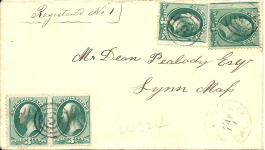 Registered No 1
Mr Dean Peabody Esqr
Lynn Mass